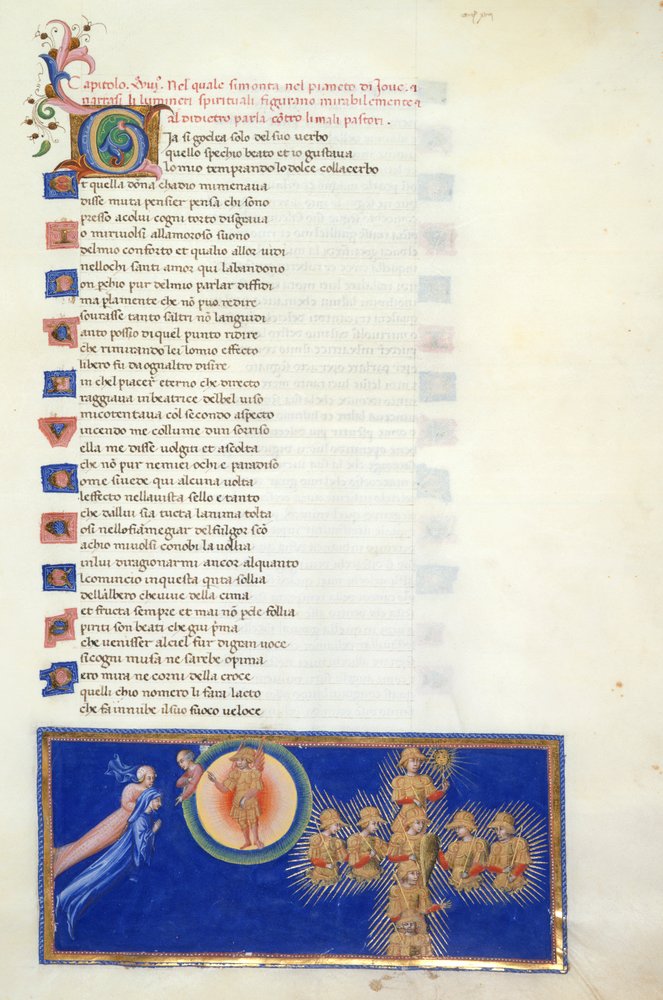 Capitolo. Xviijº. Nel quale si monta nel pianeto di Jove. ⁊
narrasi li lumineri spirituali figurano mirabilemente ⁊
al didietro parla cōtro li mali pastori.
Gia si godea solo del suo verbo
quello spechio beato et io gustava
lo mio temprando lo dolce coll acerbo
t quella dōna cha dio mi menava
disse muta pensier pensa chi sono
presso a colui cogni torto disgrava
o mi rivolsi all amoroso suono
del mio conforto et qual io allor vidi
nell ochi santi amor qui l abandono
on pchio pur del mio parlar diffidi
ma p la mente che nō puo redire
sovra sse tanto saltri nō la guidi
anto possio di quel punto ridire
che rimirando lei lo mio effecto
libero fu da ognaltro disire
in chel piacer eterno che directo
raggiava in beatrice del bel viso
mi cotentava col secondo aspecto
incendo me col lume dun sorriso
ella me disse volgiti et ascolta
che nō pur ne miei ochi e paradiso
ome si vede qui alcuna volta
leffecto nella vista sello e tanto
che da llui sia tucta lanima tolta
osi nello fiamegiar del fulgor scō
a chio mi volsi conobi la vollia
in lui di ragionarmi ancor alquanto
l comincio in questa qnta sollia
dell albero che vive della cima
et fructa sempre et mai nō pde follia
piriti son beati che giu pma
che venisser al ciel fur di gran voce
si cogni musa ne sarebe opima
ero mira ne corni della croce
quelli chio nomero li fara lacto
che fa in nube il suo fuoco veloce